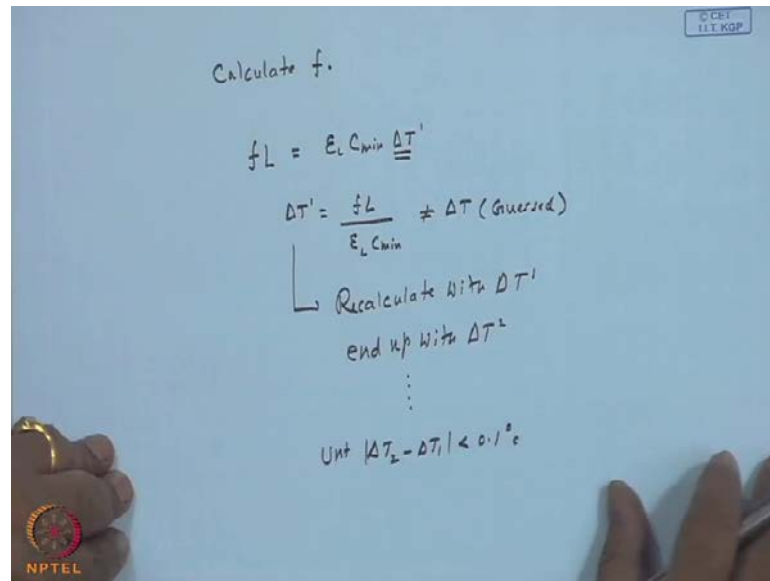 © CET
I.I.T. KGP
Calculate f.
fL = ε_L C_min ΔT'
ΔT' = fL / ε_L C_min ≠ ΔT (Guessed)
Recalculate with ΔT'
end up with ΔT²
Unt |ΔT₂ - ΔT₁| < 0.1°c
NPTEL